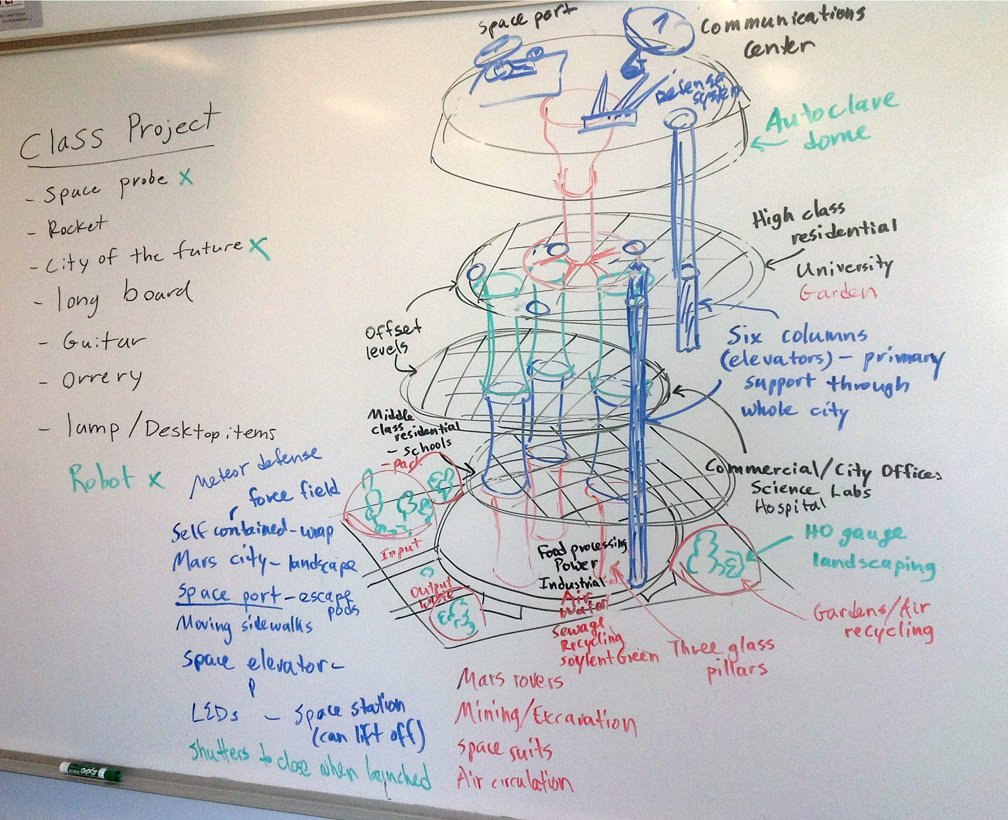 Class Project
- Space probe x
- Rocket
- City of the future x
- long board
- Guitar
- Orrery
- lamp/Desktop items
Robot x
Meteor defense
force field
Self contained-wrap
Mars city-landscape
Space port-escape
pods
Moving sidewalks
Space elevator-
LEDs - Space station
(can lift off)
Shutters to close when launched
Space port
Communications
center
Defense
System
Autoclave
dome
High class
residential
University
Garden
Offset
levels
Six columns
(elevators) - primary
support through
whole city
Middle
class
residential
- schools
- park
Commercial/City Offices
Science Labs
Hospital
Input
Output
waste
HO gauge
landscaping
Gardens/Air
recycling
Three glass
pillars
Food processing
Power
Industrial
Air
Water
Sewage
Recycling
Soylent Green
Mars rovers
Mining/Excavation
Space suits
Air circulation
EXPO